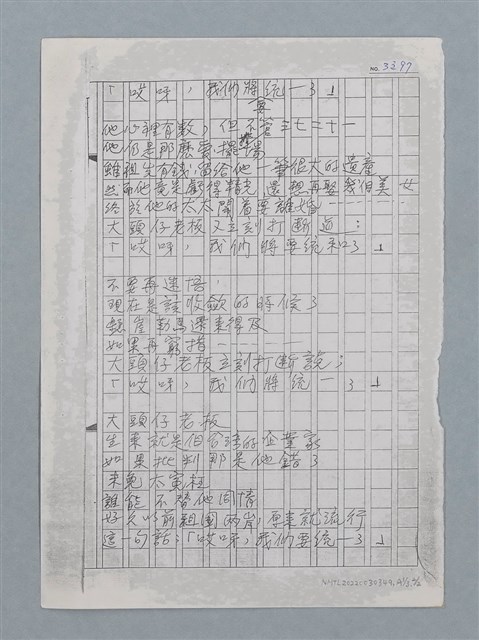 NO. 3之97
「哎呀，我們將要統一了」
他心裡有數，但不管三七二十一
他仍是那麼愛擺場
雖祖父有錢，留給他一筆很大的遺產
然而他竟是虧得精光，還想再娶幾個美女
終於他的太太鬧着要離婚------
大頭仔老板又立刻打斷道：
「哎呀，我們將要統和了」
不要再迷悟，
現在是該收歛的時候了
懸崖勒馬還來得及
如果再窮指------
大頭仔老板立刻打断說：
「哎呀，我們將統一了」
大頭仔老板
生來就是個的企業家
如果批判那是他錯了
未免太寃枉
誰能不替他同情
好久以前祖國兩岸，原來就流行
這一句話：「哎呀，我們要統一了」